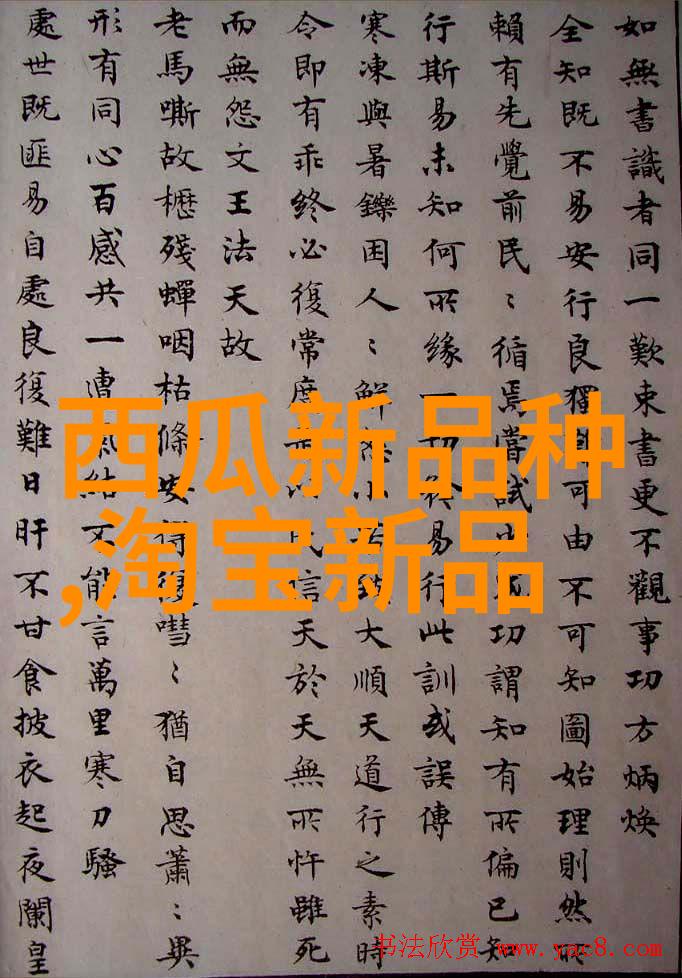 如無書識者同一歎束書更不觀事功方炳煥
全知既不易安行良獨可由不可知圖始理則然所
賴有先覺前民〻循焉當試少成功謂知有所偏已知
行斯易未知何所緣一切從易行此訓或誤傳
寒凍與暑鑠困人〻解小大順天道行之素時
令即有乖終必復常度民信天於天無所忤雖死
而無怨文王法天故
老馬嘶故櫪殘蟬咽枯條安得復囂〻猶自思蕭〻異
形有同心百感共一漕氣結不能言萬里寒刀騷
處世既匪易自處良復難日旰不甘食披衣起夜闌皇
西瓜新品种
,淘宝新品
书法欣赏 www.yac8.com